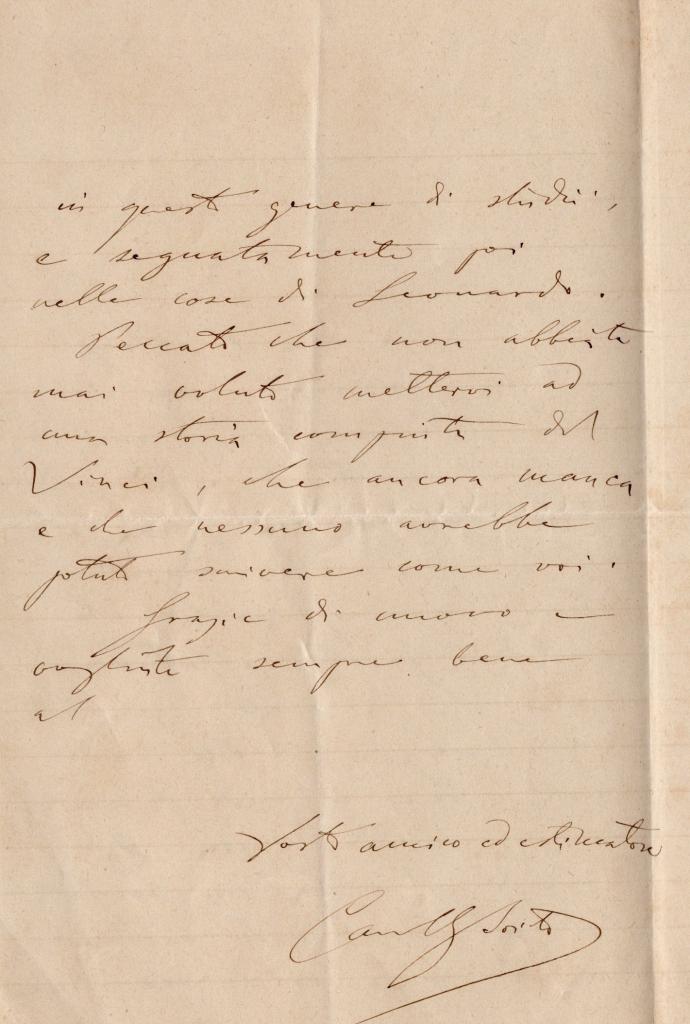 in questo genere di studii,
e segnatamente poi
nelle cose di Leonardo.
Peccato che non abbiate
mai voluto mettervi ad
una storia compiuta del
Vinci, che ancora manca
e che nessuno avrebbe
potuto scrivere come voi.
Grazie di nuovo e
vogliate sempre bene
al
Vostro amico ed estimatore
Boito